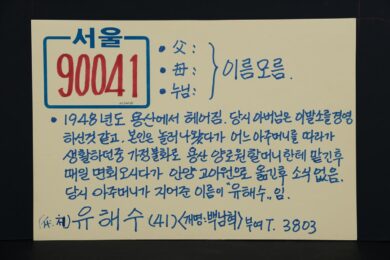 서울
90041
• 父:
• 母:
• 누님:
이름모름.
• 1948년도 용산에서 헤어짐. 당시 아버님은 이발소를 경영
하신것 같고. 본인은 놀러나왔다가 어느 아주머니를 따라가
생활하던중 가정불화로 용산 양로원 할머니한테 맡긴후
매일 면회오시다가 안양 고아원으로 옮긴후 소식 없음.
당시 아주머니가 지어준 이름이 "유해수" 임.
유해수 (41) <개명: 백남혁> 부여 T. 3803